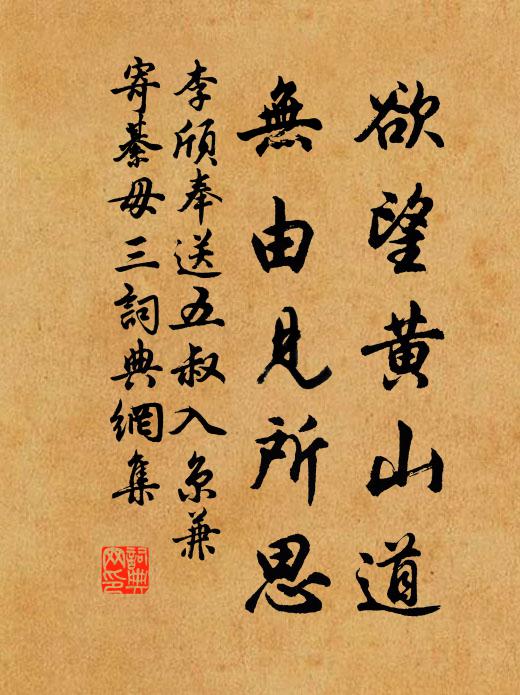 欲望黄山道
無由見所思
李頎奉送五叔入京兼
寄綦毋三詞典網集
詞典網印